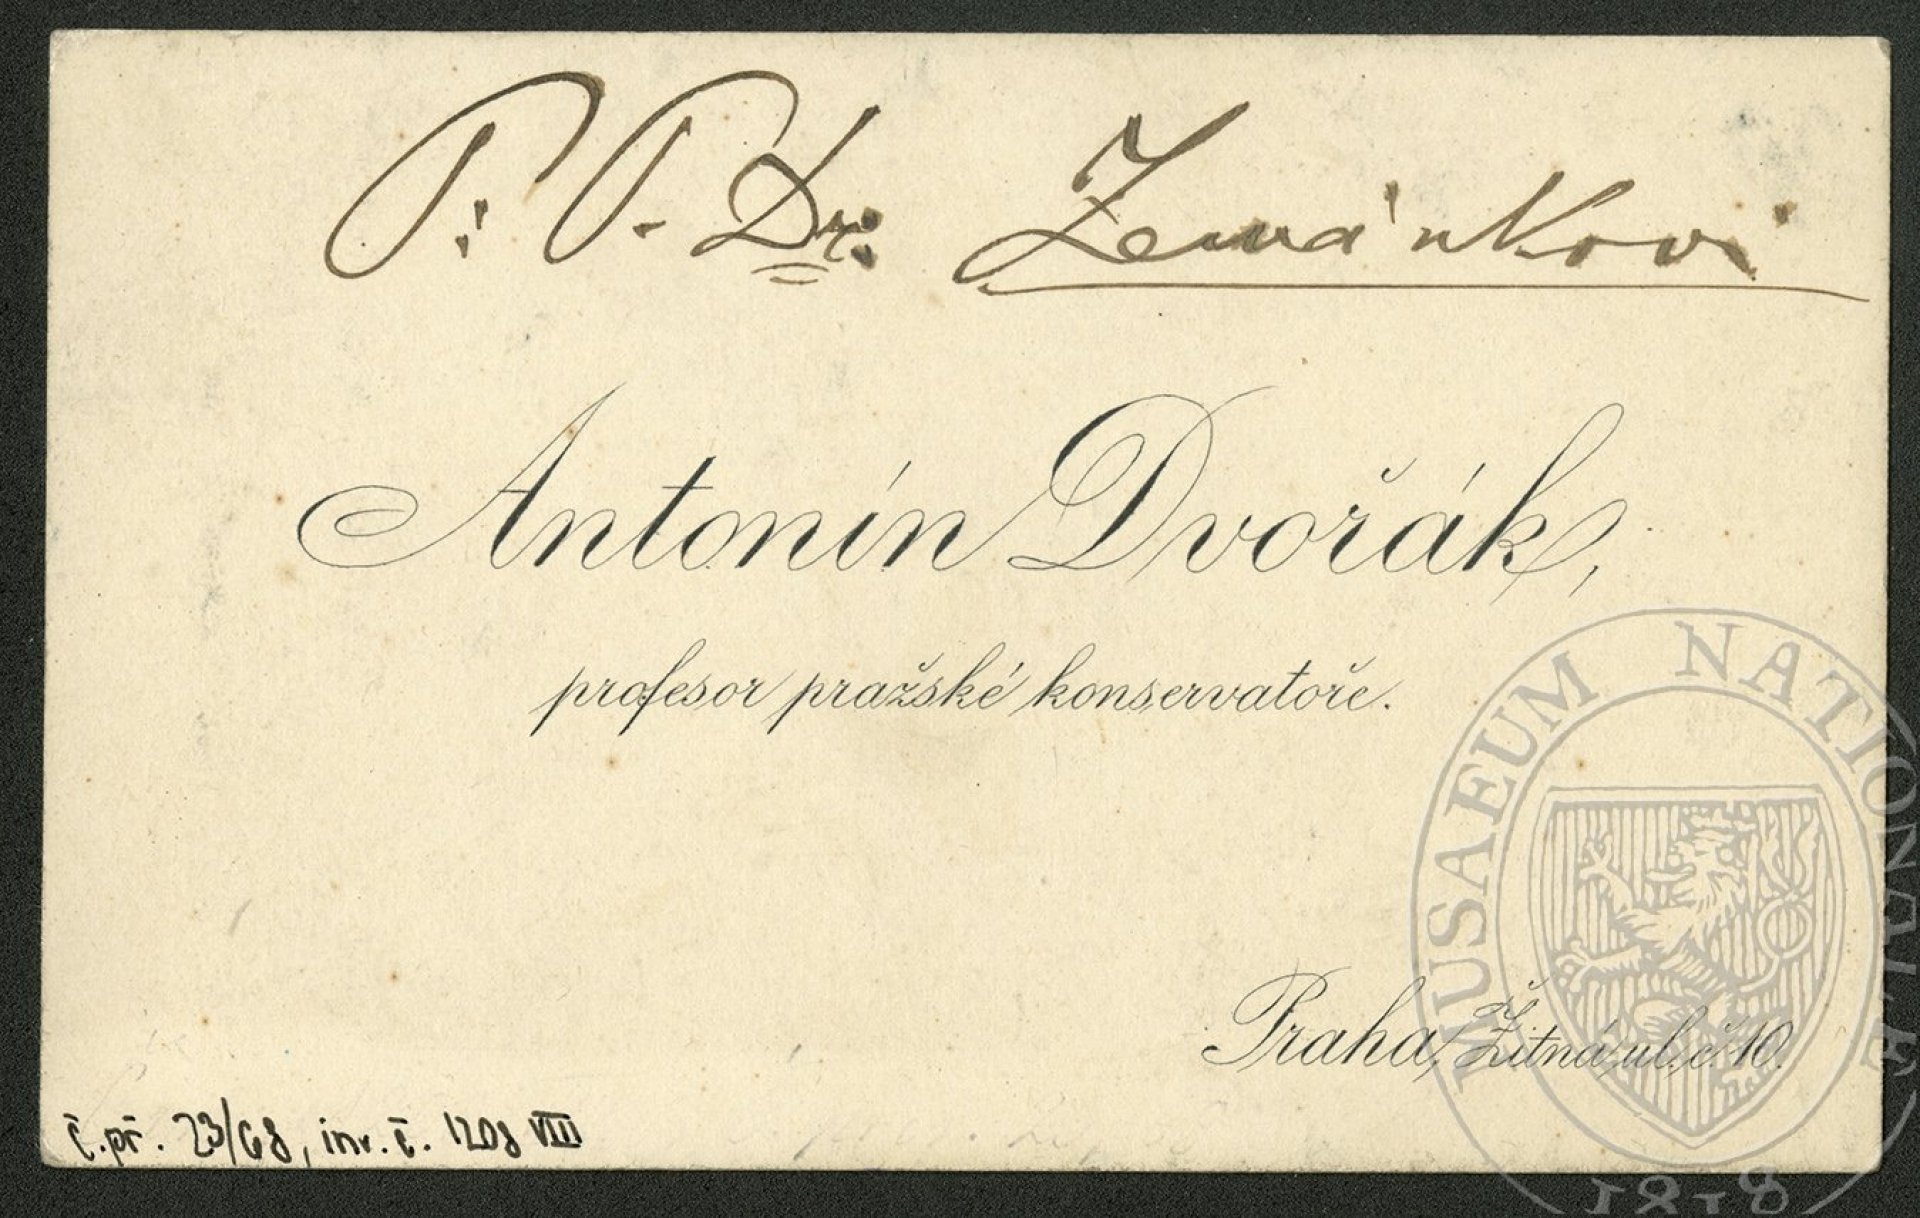 P. T. Dr. Zemánkovi
Antonín Dvořák,
profesor pražské konservatoře.
Praha, Žitná ul. č. 10.
č. př. 23/68, inv. č. 1208 VIII
MUSAEUM NATIONALE
1818